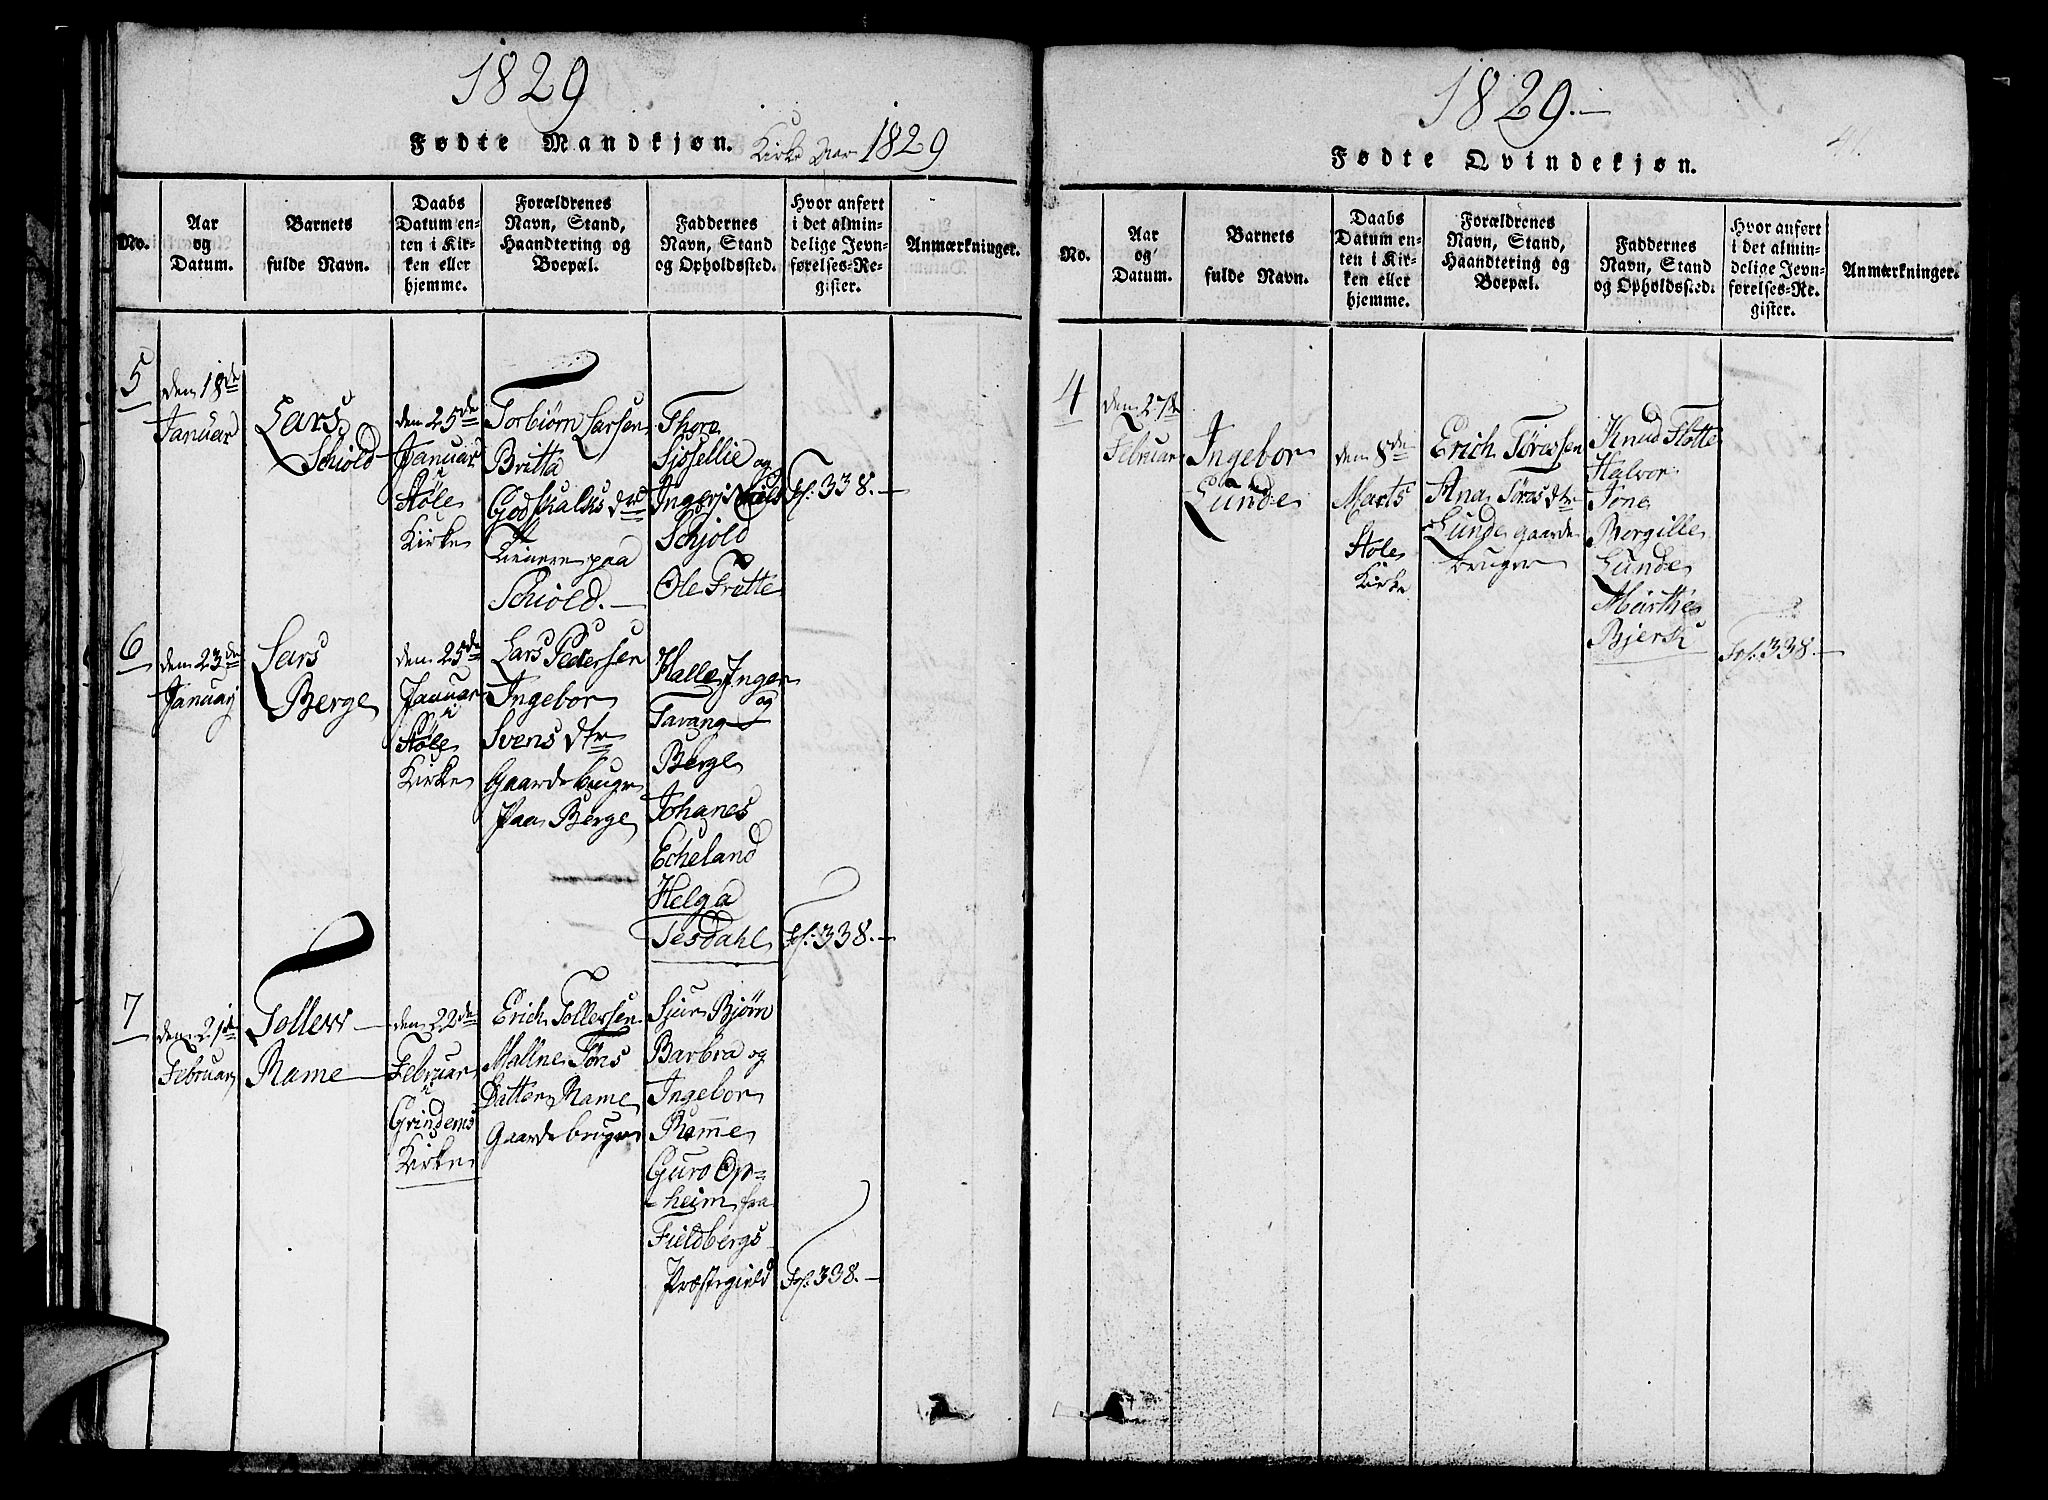 1829
Fødte Mandkjøn. Kirke Aar 1829
No.
Aar
og
Datum.
Barnets
fulde Navn.
Daabs
Datum en-
ten i Kir-
ken eller
hjemme.
Forældrenes
Navn, Stand,
Haandtering og
Boepæl.
Faddernes
Navn, Stand
og Opholdssted.
Hvor anført
i det almin-
delige Jevn-
førelses-Re-
gister.
Anmærkninger.
5
den 18de
Januar
Lars
Schiold
den 25de
Januar
i
Høle
Kirke
Torbiørn Larsen
Britta
Godskalks dtr
Leuere paa
Schiold.
Thore
Sissellie og
Schjold
Ole Tritte
Fol: 338.
6
den 23de
Januarj
Lars
Berge
den 25de
Januar
i
Høle
Kirke
Lars Pedersen
Ingebor
Svens dtr
Gaardebruger
Paa Berge
Halle Inger
og
Tavang
Berge
Johanes
Echeland
Helga
Tesdahl
Fol: 338.
7
den 21de
Februar
Tollew
Rame
den 22de
Februar
i
Grindems
Kirke
Erich Tollersen
Mallne Tørs
Datter Rame
Gaardebruger
Sjur Bjørn
Barbra og
Ingebor
Rame
Guro Op-
heim fra
Fieldbergs
Præstegield
Fol. 338.
1829.
41.
Fødte Qvindekjøn.
No.
Aar
og
Datum.
Barnets
fulde Navn.
Daabs
Datum en-
ten i Kir-
ken eller
hjemme.
Forældrenes
Navn, Stand,
Haandtering og
Boepæl.
Faddernes
Navn, Stand
og Opholdssted.
Hvor anført
i det almin-
delige Jevn-
førelses-Re-
gister.
Anmærkninger.
4
den 27de
Februar
Ingebor
Lunde
den 8de
Marts
Høle
Kirke
Erich Tøressen
Ana Tøres dtr
Lunde gaarde
bruger
Knud Flotte
Halvor
Tøne
Borgille
Lunde
Marthe
Bjerk
Fol. 338.